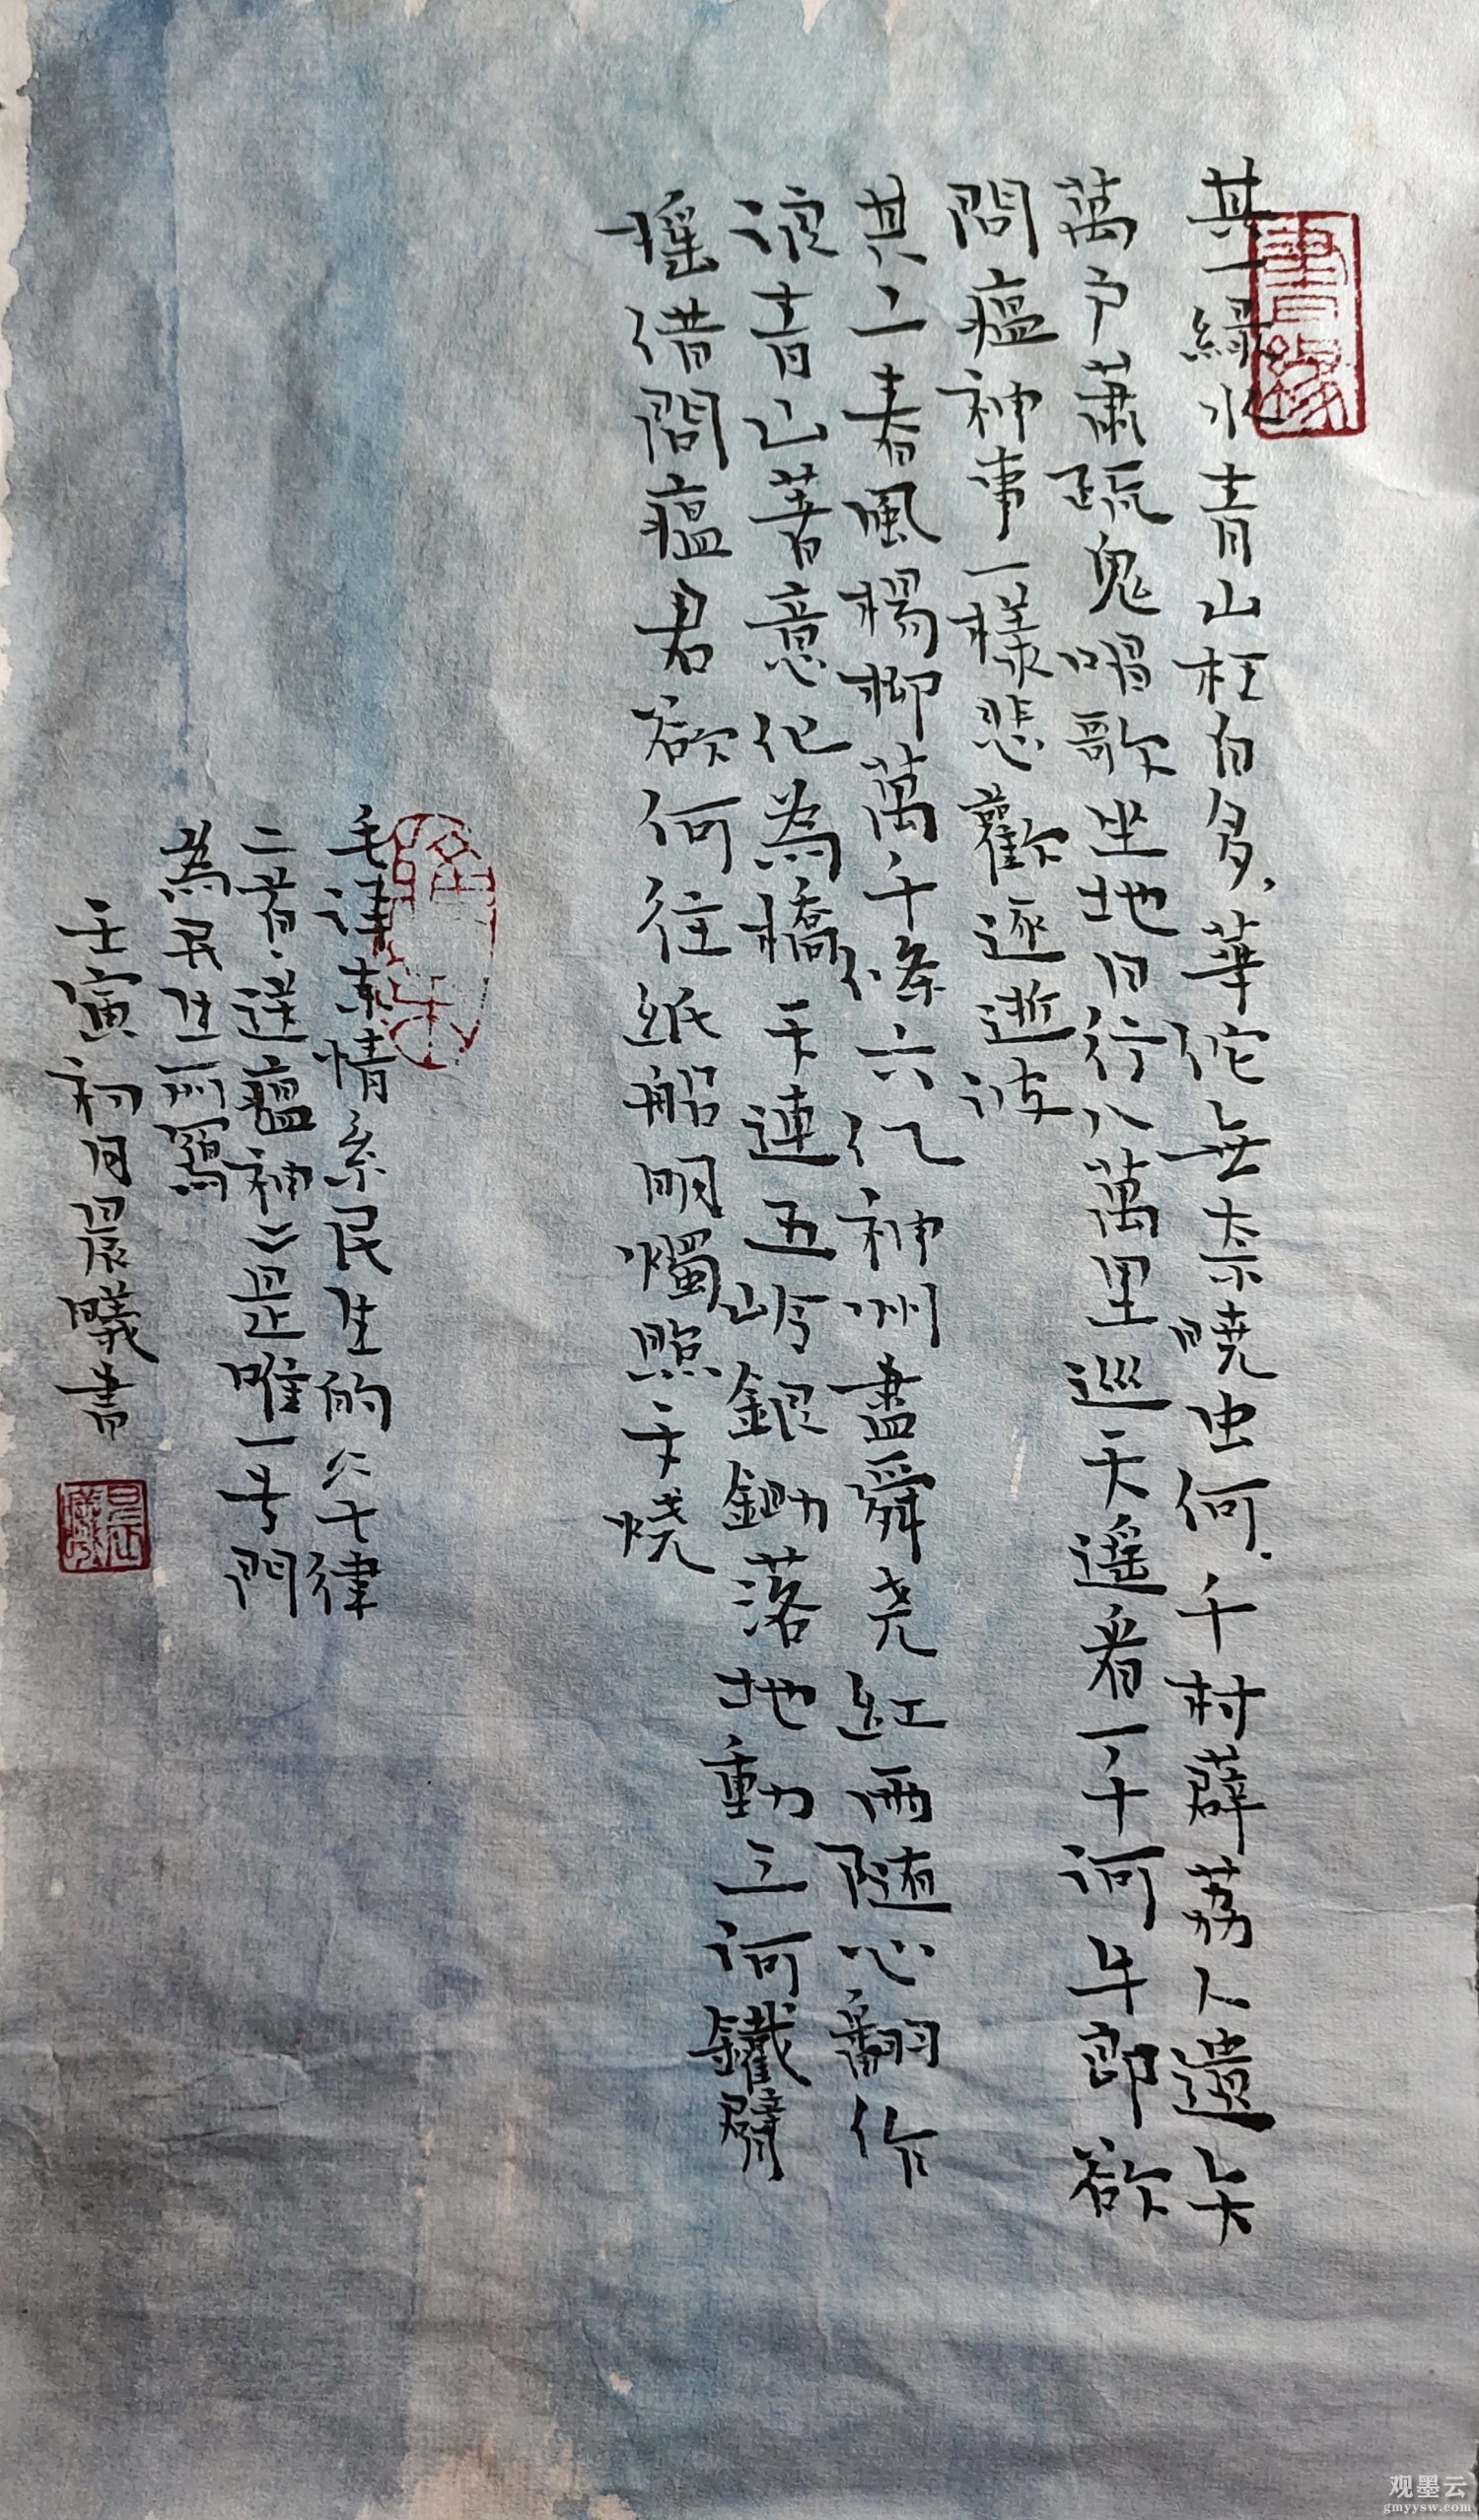 其一緑水青山枉自多，華佗無奈曉虫何．千村薜荔人遺矢
萬户蕭疏鬼唱歌坐地日行八萬里巡天遥看一千河牛郎欲
問瘟神事一樣悲歡逐逝波
其二春風楊柳萬千條六亿神州盡舜尧紅雨隨心翻作
浪青山著意化為橋天連五岭銀鋤落地動三河鐵臂
摇借問瘟君欲何往紙船明燭照天烧
毛泽東情系民生的《七律
二首·送瘟神》是唯一专門
為民生而寫
壬寅初月晨曦書
观墨云
gmyysw.com